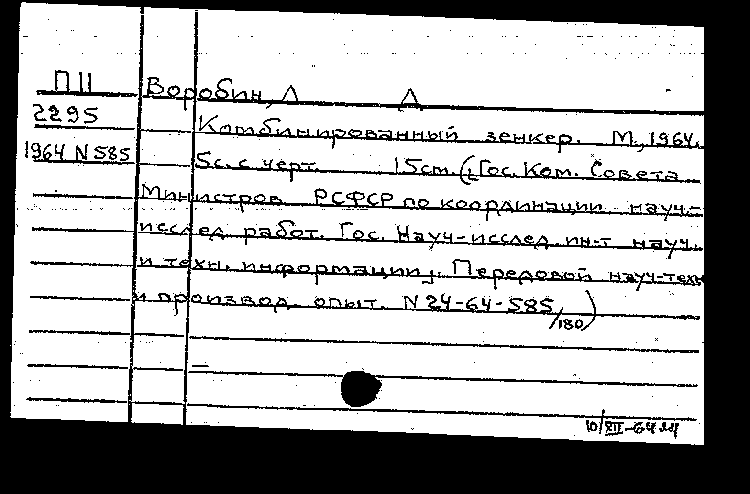 П11 Воробин, Л Л
2295
Комбинированный зенкер. М., 1964.
1964 N 585 5с. с черт. 15см. ([Гос. Ком. Совета
Министров РСФСР по координации науч.-
исслед. работ. Гос. Науч-исслед. ин-т науч.
и техн. информации]. Передовой науч-техн
и производ. опыт. N 24-64-585/180)
10/XII-64